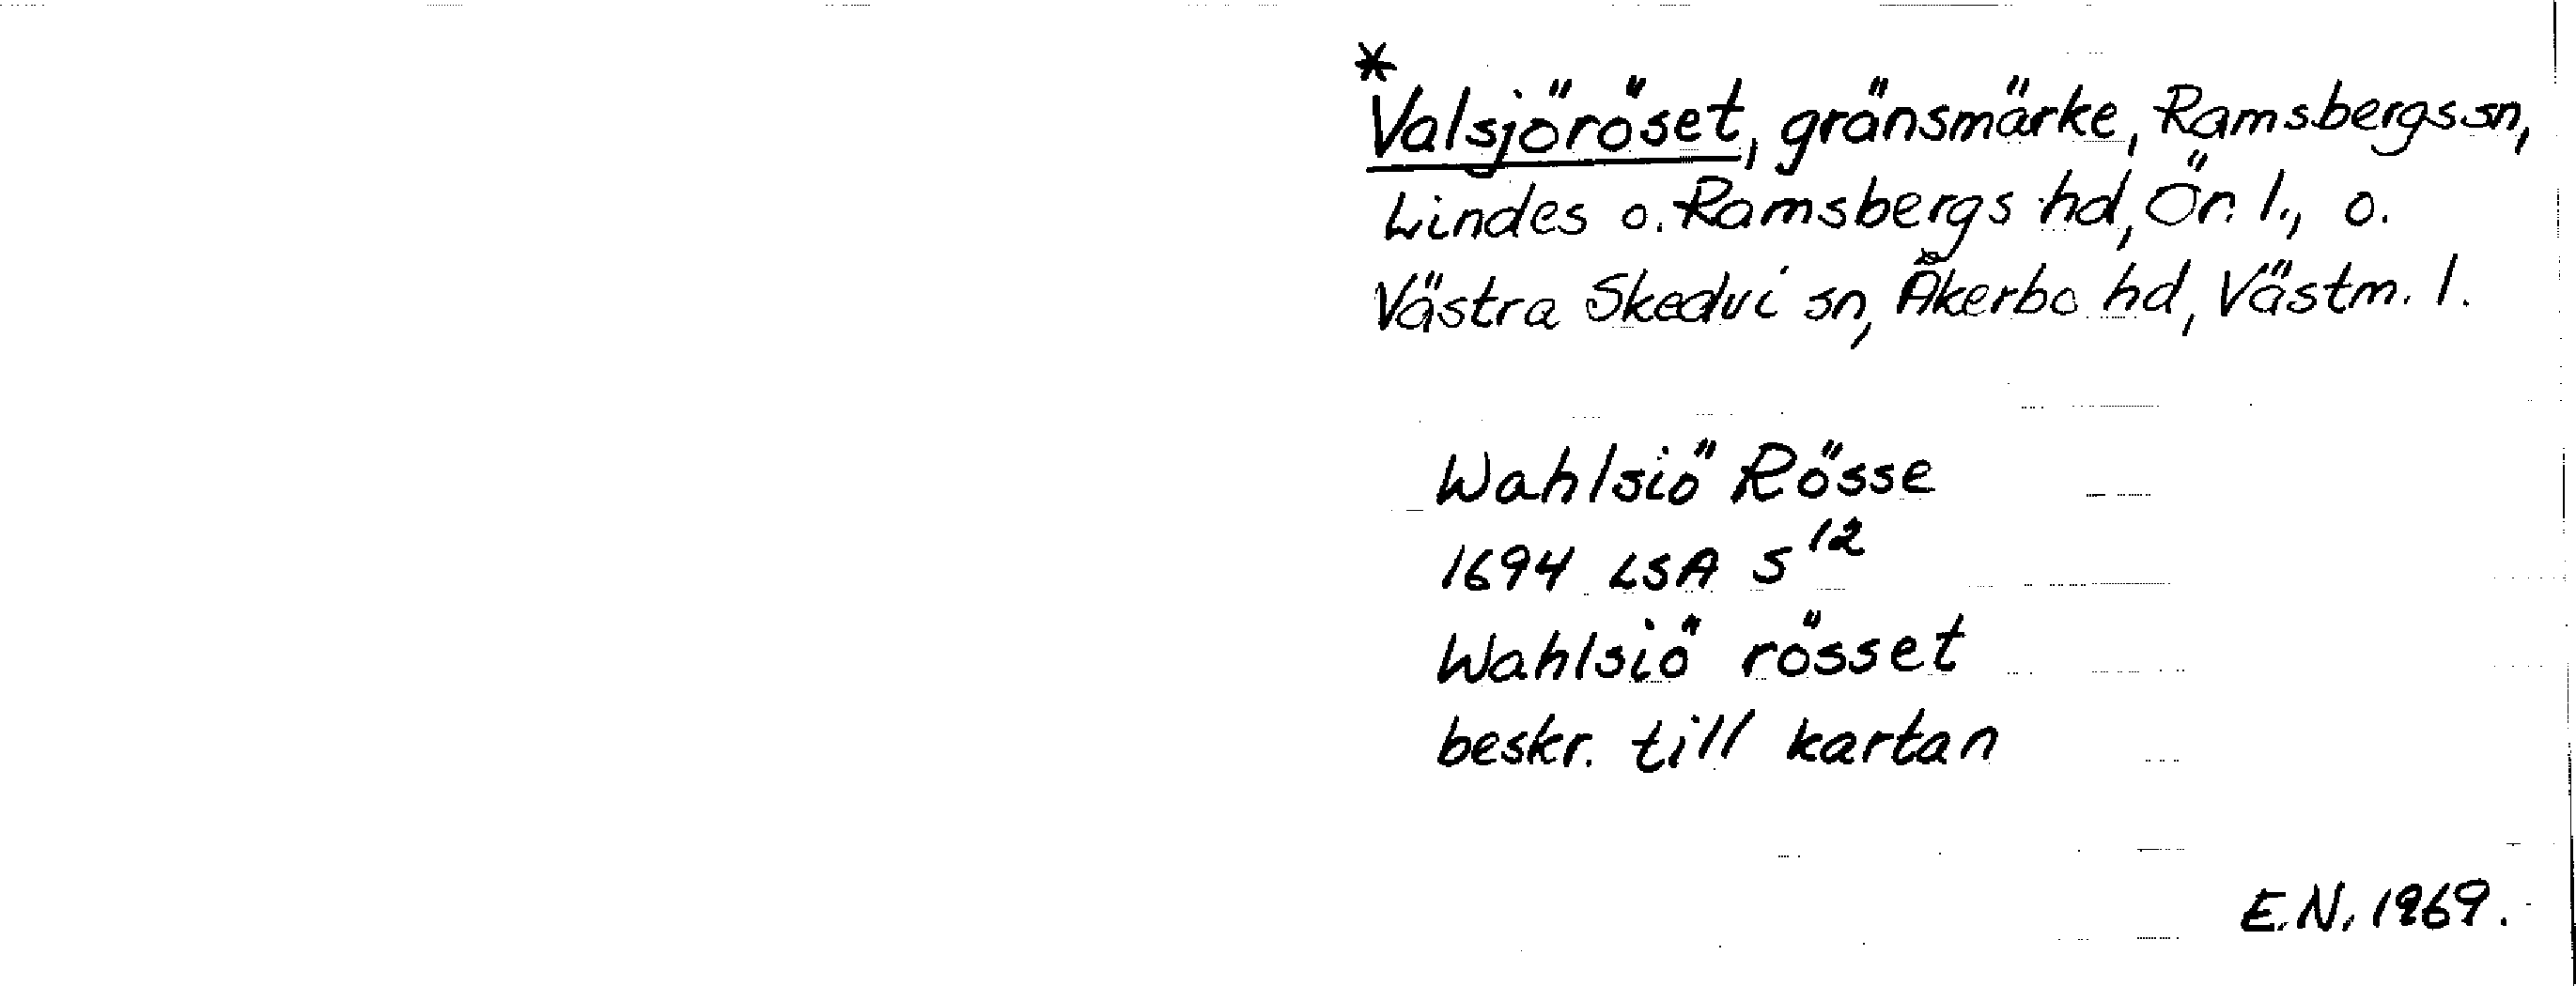 *
Valsjöröset, gränsmärke, Ramsbergs sn,
Lindes o. Ramsbergs hd, Ör. l., o.
Västra Skedvi sn, Åkerbo hd, Västm. l.
Wahlsiö Rösse
1694 LSA S 12
Wahlsiö rösset
beskr. till kartan
E.N. 1969.